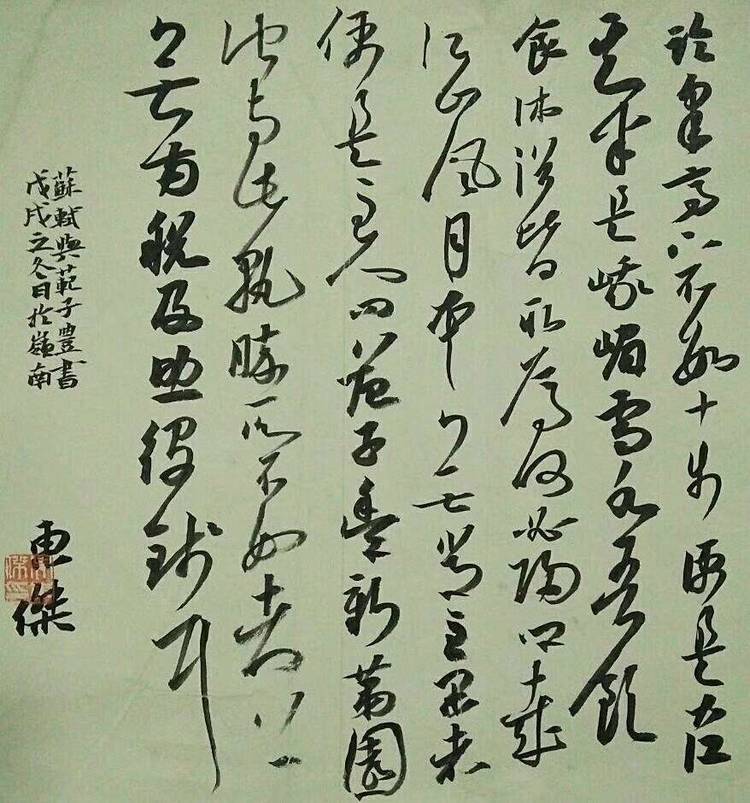 臨皋亭下不數十步便是大江
其半是峨嵋雪水吾飲
食沐浴皆取焉何必歸鄉哉
江山風月本無常主閑者
便是主人問范子豐新第園
池與此孰勝所不如者
無兩稅及助役錢耳
蘇軾與範子豐書
戊戌立冬日於嶺南
惠傑